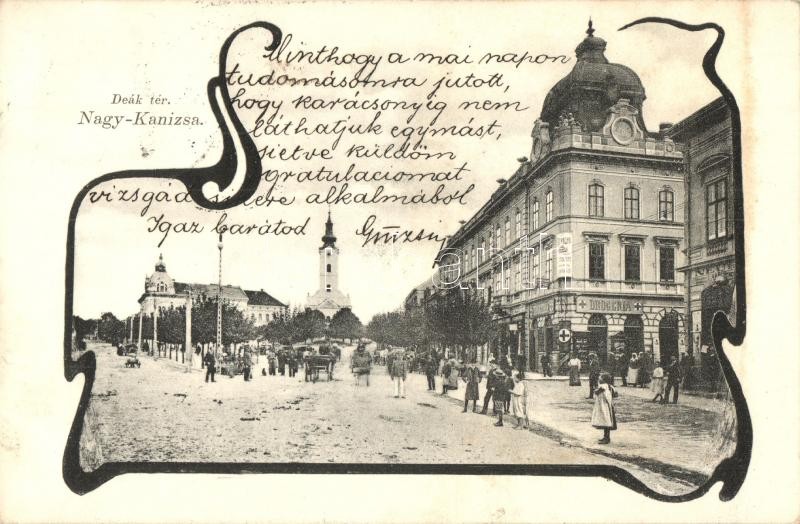 Deák tér.
Nagy-Kanizsa.
Minthogy a mai napon
tudomásomra jutott,
hogy karácsonyig nem
láthatjuk egymást,
sietve küldöm
gratulaciomat
vizsgád sikere alkalmából
Igaz barátod
DROGERIA
darabanth